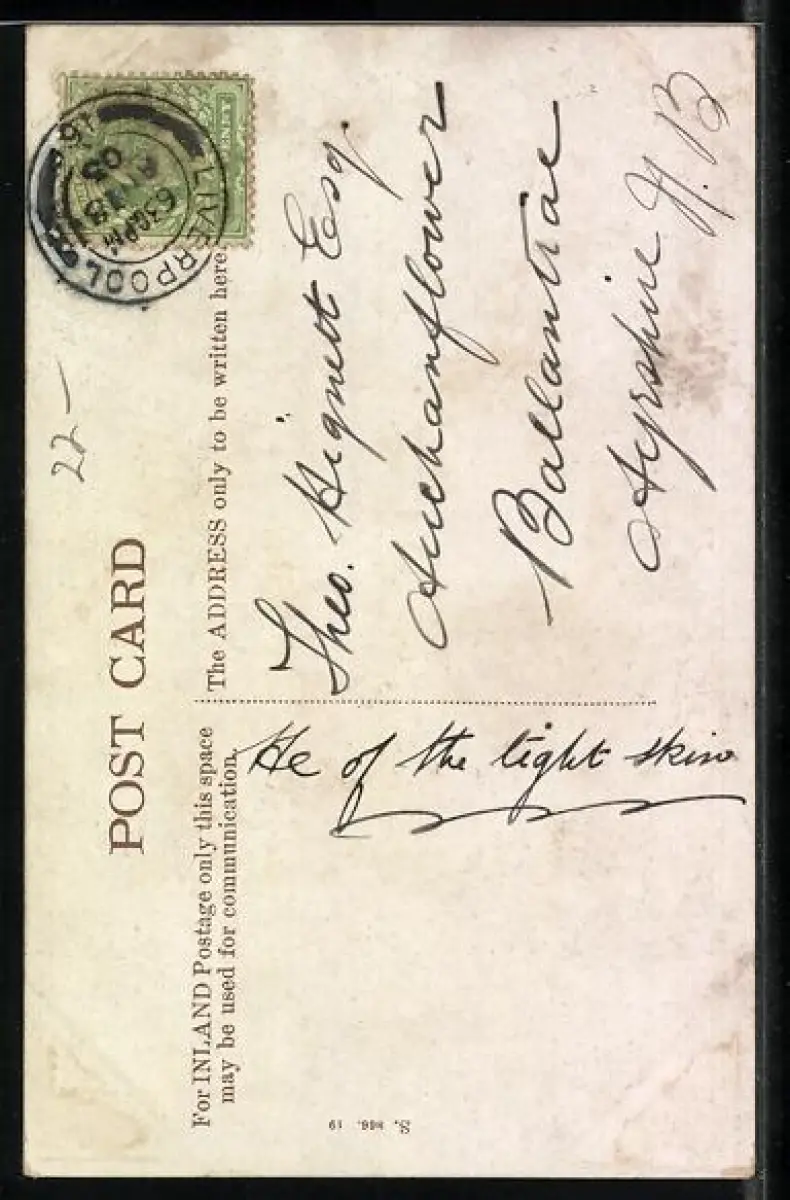 POST CARD
For INLAND Postage only this space
may be used for communication.
The ADDRESS only to be written here
22 —
LIVERPOOL
6 30 PM
18
05
Theo. Hignett Esq.
Auchanflower
Ballantrae
Ayrshire N.B
He of the light skin
S. 866. 19